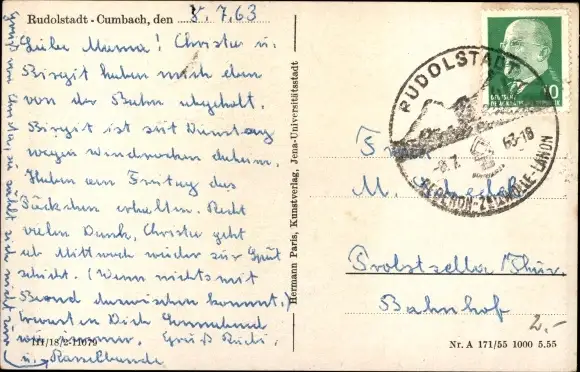 Rudolstadt - Cumbach, den 8. 7. 63
Liebe Mamma! Christa u.
Birgit haben mich eben
von der Bahn abgeholt.
Birgit ist seit Dienstag
wegen Windpocken daheim.
Haben am Freitag das
Päckchen erhalten. Recht
vielen Dank, Christa geht
ab Mittwoch wieder zur
schicht. (Wenn nichts mit
Brand dazwischen kommt.)
Erwarten Dich Sonnabend
wie immer. Gruß Rudi
u. Rasselbande
III/18/2-11679
Hermann Paris, Kunstverlag, Jena-Universitätsstadt
10
DEUTSCHE
DEMOKRATISCHE REPUBLIK
RUDOLSTADT
-8.7. 63-18
HEDERON-ZELLWOLLE-LANON
Frau
M.
Probstzella Thür.
Bahnhof
2,-
Nr. A 171/55 1000 5.55